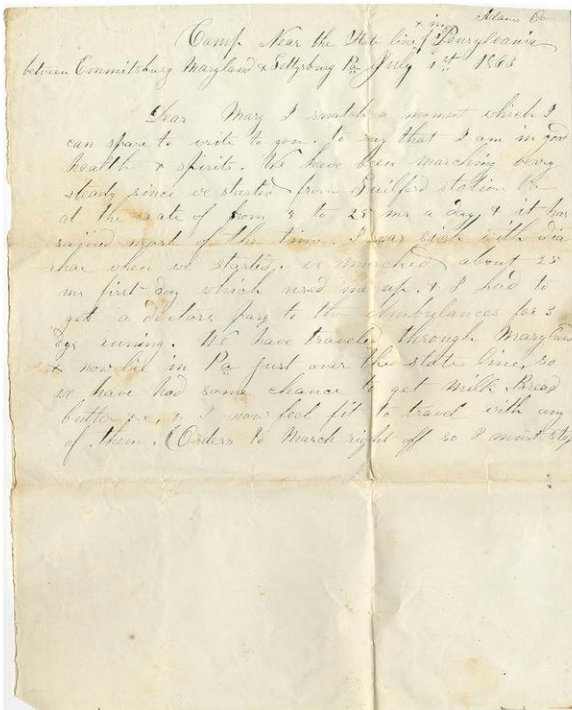 Adams
Camp Near the State line & in Pensylvania
between Emmitsburg Maryland & Gettysburg Pa July 1st 1863
Dear Mary I snatch a moment which I
can spare to write to you. to say that I am in good
health & spirits. We have been marching very
steady since we started from Guilford station Va
at the rate of from 5 to 25 ms a day & it has
rained most of the time. I was sick with dia
rhae when we started. we marched about 25
ms first day which used me up. & I had to
get a doctors pass to the ambulances for 3
dys runing. We have traveled through Maryland
& now lie in Pa just over the state line, so
we have had some chance to get milk Bread
butter &c, & I now feel fit to travel with any
of them. (Orders to March right off so I must stop